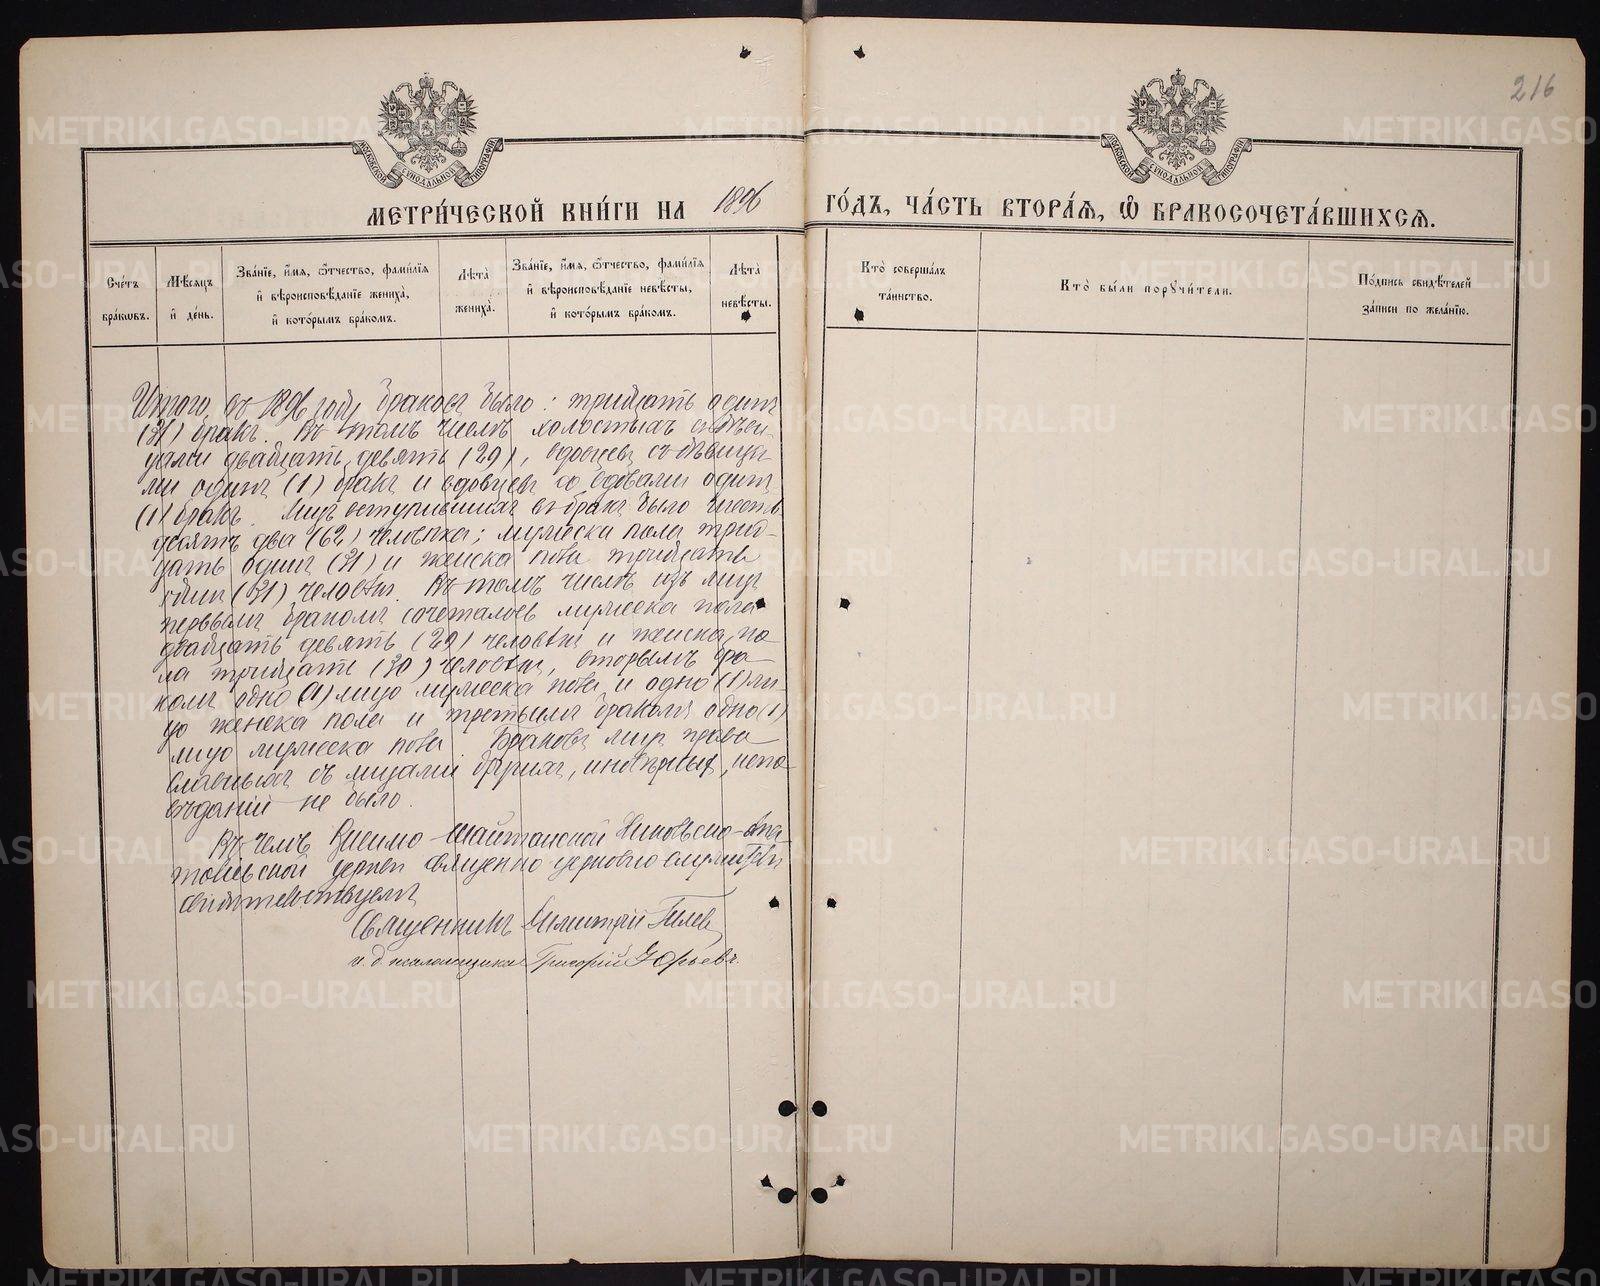 216
МОСКОВСКОЙ СѴНОДАЛЬНОЙ ТИПОГРАФІИ
МОСКОВСКОЙ СѴНОДАЛЬНОЙ ТИПОГРАФІИ
МЕТРИ́ЧЕСКОЙ КНИ́ГИ НА 1896 ГО́ДЪ, ЧА́СТЬ ВТОРА́Ѧ, Ѽ БРАКОСОЧЕТА́ВШИХСѦ.
Сче́тъ бра́кѡвъ.
Мѣ́сѧцъ и҆ де́нь.
Зва́нїе, и҆́мѧ, ѻ҆́тчество, фами́лїѧ и҆ вѣроисповѣ́данїе жениха̀, и҆ кото́рымъ бра́комъ.
Лѣ́та жениха̀.
Зва́нїе, и҆́мѧ, ѻ҆́тчество, фами́лїѧ и҆ вѣроисповѣ́данїе невѣ́сты, и҆ кото́рымъ бра́комъ.
Лѣ́та невѣ́сты.
Кто̀ соверша́лъ та́инство.
Кто̀ бы́ли порꙋчи́тели.
По́дпись свидѣ́телей за́писи по жела́нїю.
Итого въ 1896 году браковъ было: тридцать одинъ
(31) бракъ. Въ томъ числѣ холостыхъ съ дѣви-
цами двадцать девять (29), вдовцевъ съ дѣвица-
ми одинъ (1) бракъ и вдовцевъ со вдовами одинъ
(1) бракъ. Лицъ вступившихъ въ бракъ было шесть
десятъ два (62) человѣка; мужеска пола трид-
цать одинъ (31) и женска пола тридцать
одинъ (31) человѣкъ. Въ томъ числѣ изъ лицъ
первымъ бракомъ сочеталось мужеска пола
двадцать девять (29) человѣкъ и женска по-
ла тридцать (30) человѣкъ, вторымъ бра-
комъ одно (1) лицо мужеска пола и одно (1) ли-
цо женска пола и третьимъ бракомъ одно (1)
лицо мужеска пола. Браковъ лицъ право
славныхъ съ лицами другихъ, иновѣрныхъ, испо-
вѣданій не было.
Въ чемъ Висимо-Шайтанской Николаево-Ана
толіевской церкви священно церковно служители
свидѣтельствуемъ
Священникъ Димитрій Гилевъ
и. д. псаломщика Григорій Юрьевъ.
METRIKI.GASO-URAL.RU